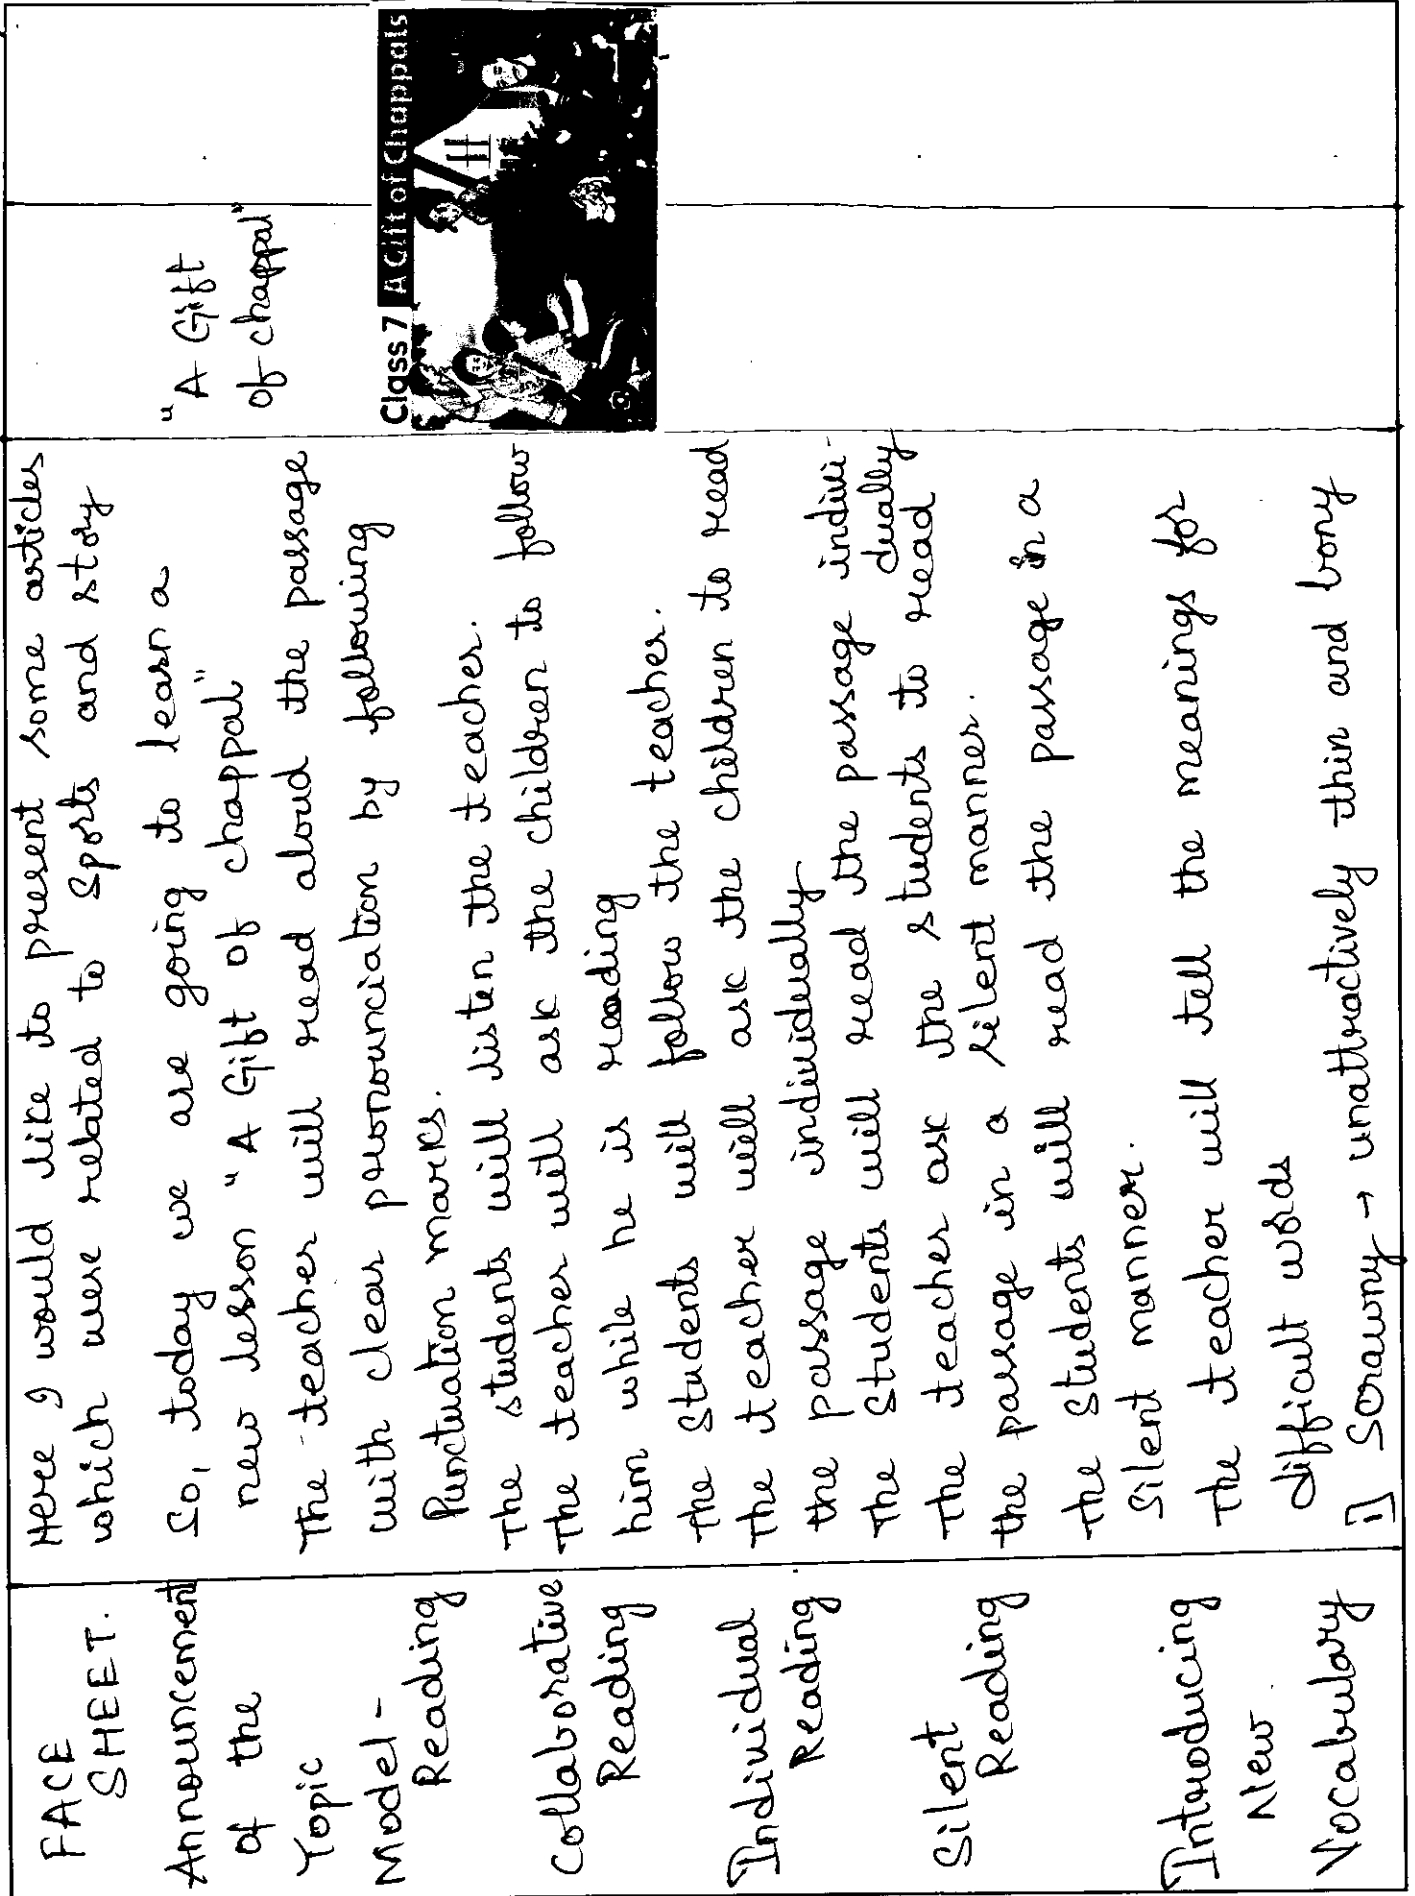 FACE
SHEET.
Here I would like to present some articles
which were related to Sports and story
Announcement
of the
Topic
So, today we are going to learn a
new lesson "A Gift of chappal"
"A Gift
of chappal"
Model-
Reading
The teacher will read aloud the passage
with clear pronounciation by following
Punctuation marks.
The students will listen the teacher.
Class 7 A Gift of Chappals
Collaborative
Reading
The teacher will ask the children to follow
him while he is reading
The students will follow the teacher.
Individual
Reading
The teacher will ask the children to read
the passage individually
The students will read the passage indivi-
dually
Silent
Reading
The teacher ask the students to read
the passage in a silent manner.
The students will read the passage in a
Silent manner.
Introducing
New
Vocabulary
The teacher will tell the meanings for
difficult words
1] Scrawny → unattractively thin and bony